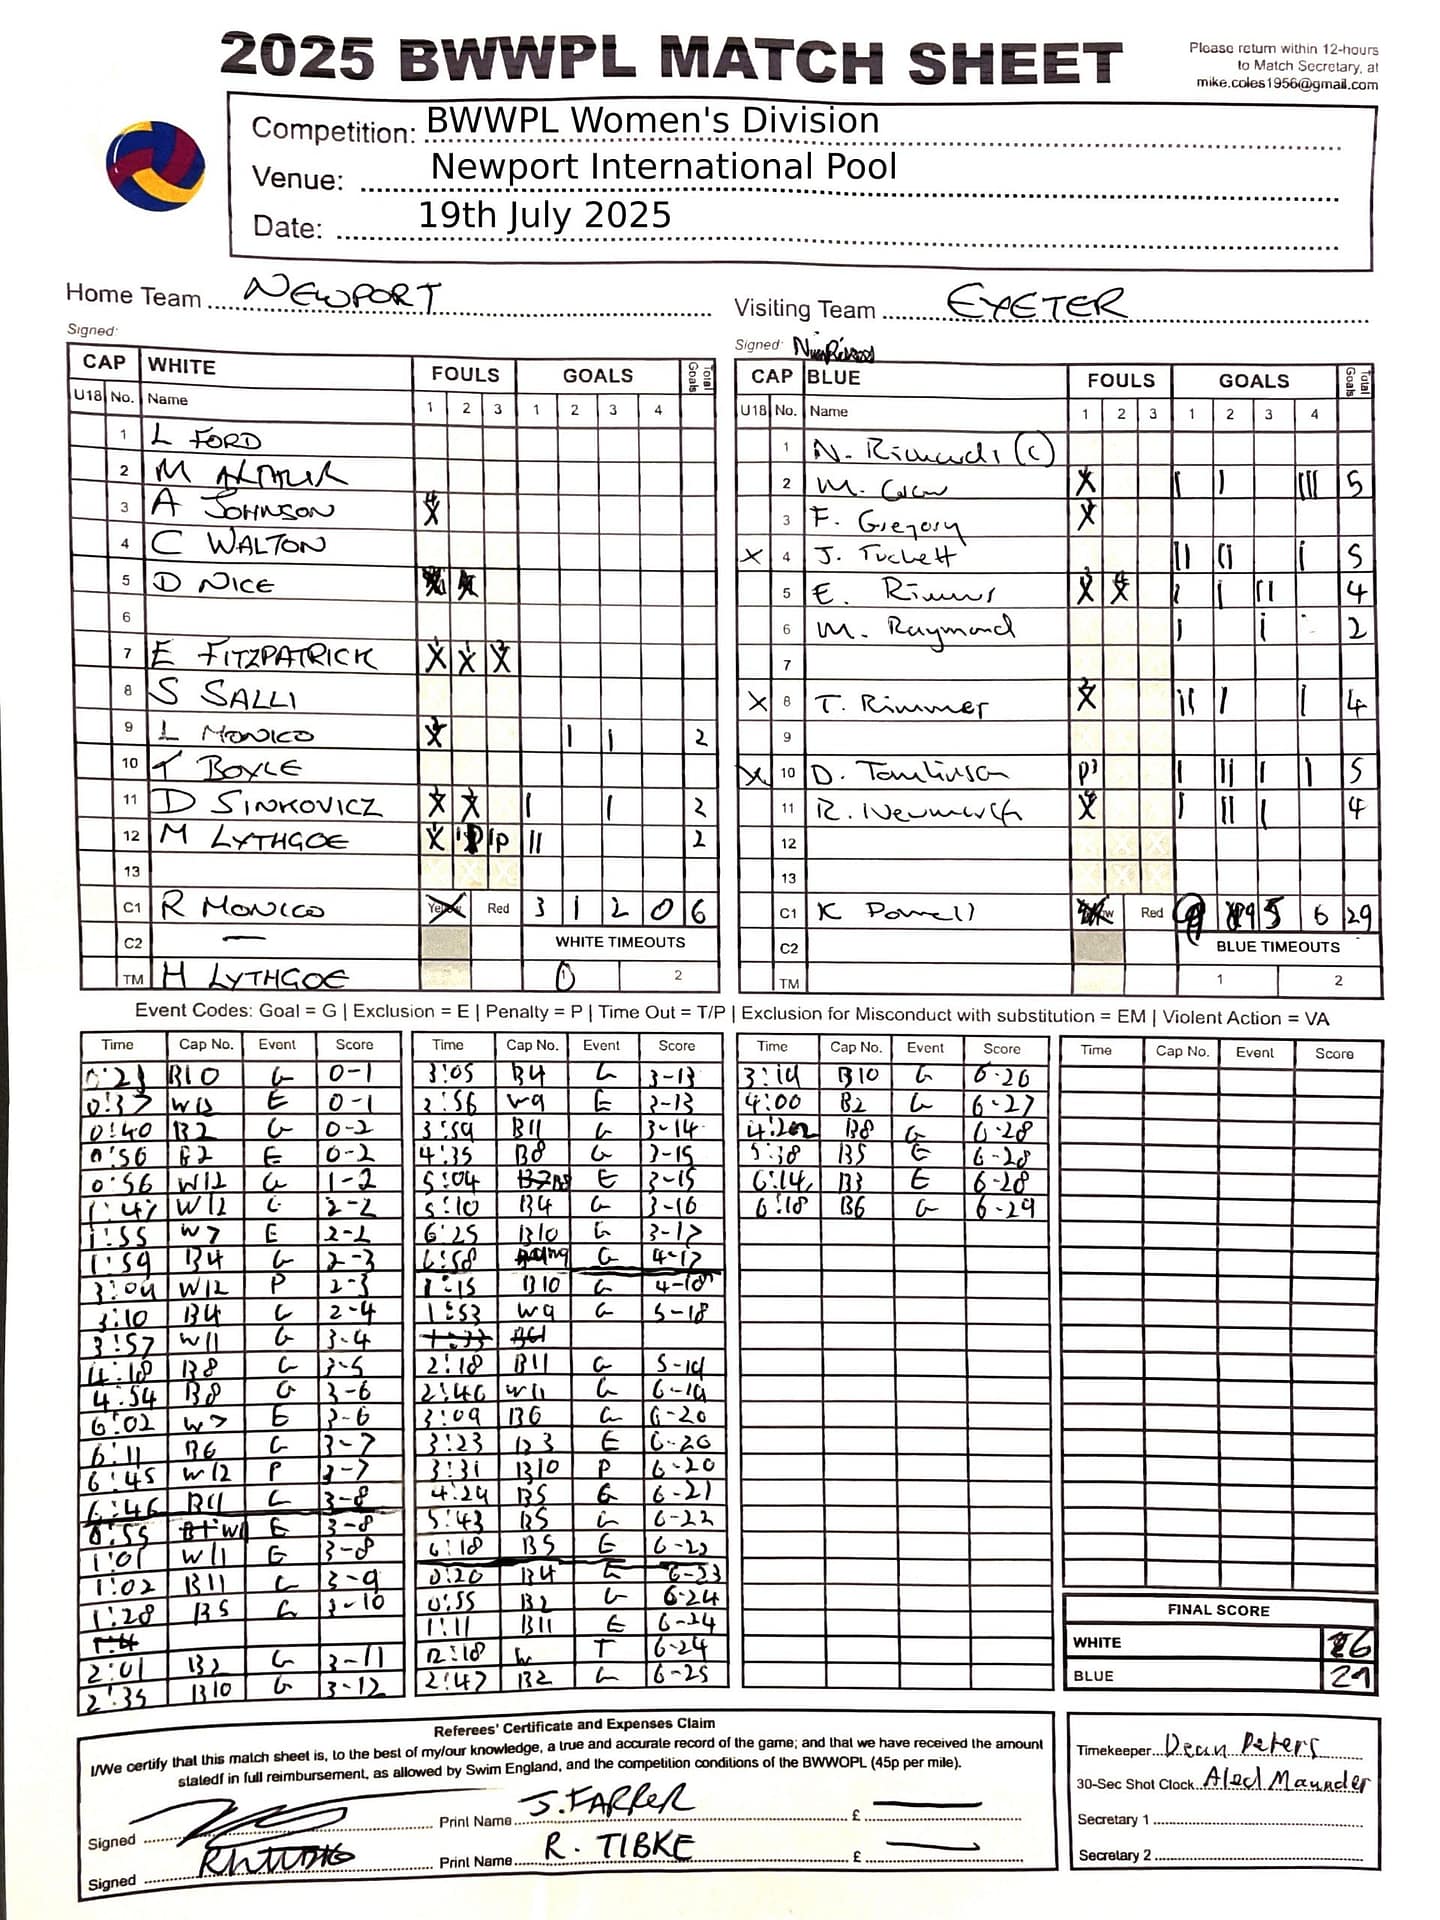 2025 BWWPL MATCH SHEET
Please return within 12-hours
to Match Secretary, at
mike.coles1956@gmail.com
Competition: BWWPL Women's Division
Venue: Newport International Pool
Date: 19th July 2025
Home Team NEWPORT
Visiting Team EXETER
Signed:
Signed:
CAP WHITE FOULS GOALS Total Goals
U18 No. Name 1 2 3 1 2 3 4
1 L FORD
2 M
3 A JOHNSON X
4 C WALTON
5 D NICE
6
7 E FITZPATRICK X X X
8 S SALLI
9 L MONICO X | | 2
10 T BOYLE
11 D SINKOVICZ X X | | 2
12 M LYTHGOE X P P || 2
13
C1 R MONICO Yellow Red 3 1 2 0 6
C2 — WHITE TIMEOUTS
TM H LYTHGOE 1 2
CAP BLUE FOULS GOALS Total Goals
U18 No. Name 1 2 3 1 2 3 4
1 N. (C)
2 M. X | | ||| 5
3 F. Gregory X
X 4 J. Tuckett || || | 5
5 E. X X | | || 4
6 M. Raymond | | 2
7
X 8 T. Rimmer X || | | 4
9
X 10 D. Tomlinson P | || | | 5
11 R. X | || | 4
12
13
C1 K Powell Red 9 5 6 29
C2 BLUE TIMEOUTS
TM 1 2
Event Codes: Goal = G | Exclusion = E | Penalty = P | Time Out = T/P | Exclusion for Misconduct with substitution = EM | Violent Action = VA
Time Cap No. Event Score
0:21 B10 G 0-1
0:37 E 0-1
0:40 B2 G 0-2
0:56 B2 E 0-2
0:56 W12 G 1-2
1:47 W12 G 2-2
1:55 W7 E 2-2
1:59 B4 G 2-3
3:04 W12 P 2-3
3:10 B4 G 2-4
3:57 W11 G 3-4
4:18 B8 G 3-5
4:54 B8 G 3-6
6:02 W7 E 3-6
6:11 B6 G 3-7
6:45 W12 P 3-7
6:46 B11 G 3-8
0:55 W11 E 3-8
1:01 W11 E 3-8
1:02 B11 G 3-9
1:28 B5 G 3-10
2:01 B2 G 3-11
2:35 B10 G 3-12
Time Cap No. Event Score
3:05 B4 G 3-13
3:56 W9 E 3-13
3:59 B11 G 3-14
4:35 B8 G 3-15
5:04 B8 E 3-15
5:10 B4 G 3-16
6:25 B10 G 3-17
6:58 G 4-17
1:15 B10 G 4-18
1:53 W9 G 5-18
2:18 B11 G 5-19
2:46 W11 G 6-19
3:09 B6 G 6-20
3:23 B3 E 6-20
3:31 B10 P 6-20
4:24 B5 G 6-21
5:43 B5 G 6-22
6:18 B5 6-23
0:20 B4 6-23
0:55 B2 G 6-24
1:11 B11 E 6-24
2:18 W T 6-24
2:47 B2 G 6-25
Time Cap No. Event Score
3:14 B10 G 6-26
4:00 B2 G 6-27
B8 G 6-28
5:38 B5 E 6-28
6:14 B3 E 6-28
6:18 B6 G 6-29
Time Cap No. Event Score
FINAL SCORE
WHITE 6
BLUE 29
Referees' Certificate and Expenses Claim
I/We certify that this match sheet is, to the best of my/our knowledge, a true and accurate record of the game; and that we have received the amount
statedf in full reimbursement, as allowed by Swim England, and the competition conditions of the BWWOPL (45p per mile).
Signed Print Name S. FARRER £
Signed Print Name R. TIBKE £
Timekeeper Dean Peters
30-Sec Shot Clock Aled Maunder
Secretary 1
Secretary 2